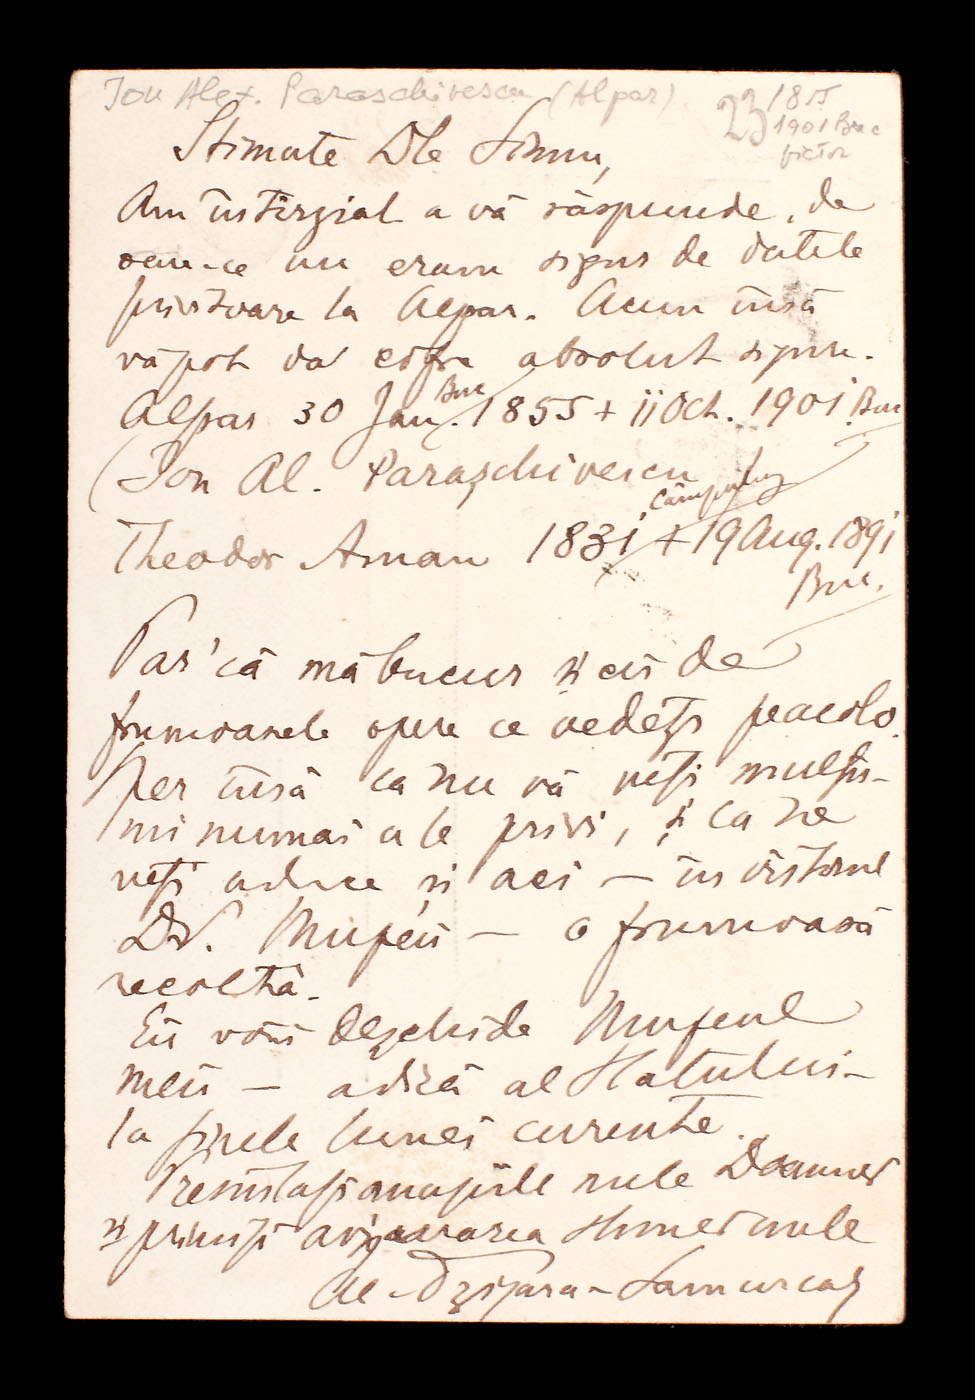 Ion Alex. Paraschivescu (Alpar)
23 1855
1901 Buc
pictor
Stimate Dle Simu,
Am întîrziat a vă răspunde, de
oare-ce nu eram sigur de datele
privitoare la Alpar. Acum însă
vă pot da cifre absolut sigure.
Alpar 30 Jan. Buc 1855 + 11 Oct. 1901 Buc
(Ion Al. Paraschivescu
Theodor Aman 1831, Câmpulung + 19 Aug. 1891
Buc.
Par'că mă bucur și eu de
frumoasele opere ce vedeți peacolo.
Sper însă ca nu vă veți mulțu-
mi numai a le privi, și ca ne
veți aduce și aci — în viitorul
Dv. Muzeu — o frumoasă
recoltă.
Eu voiu deschide Muzeul
meu — adică al Statului —
la finele lunei curente.
Prezintați omagiile mele Doamnei
și primiți asigurarea stimei mele
Al. Tzigara-Samurcaș